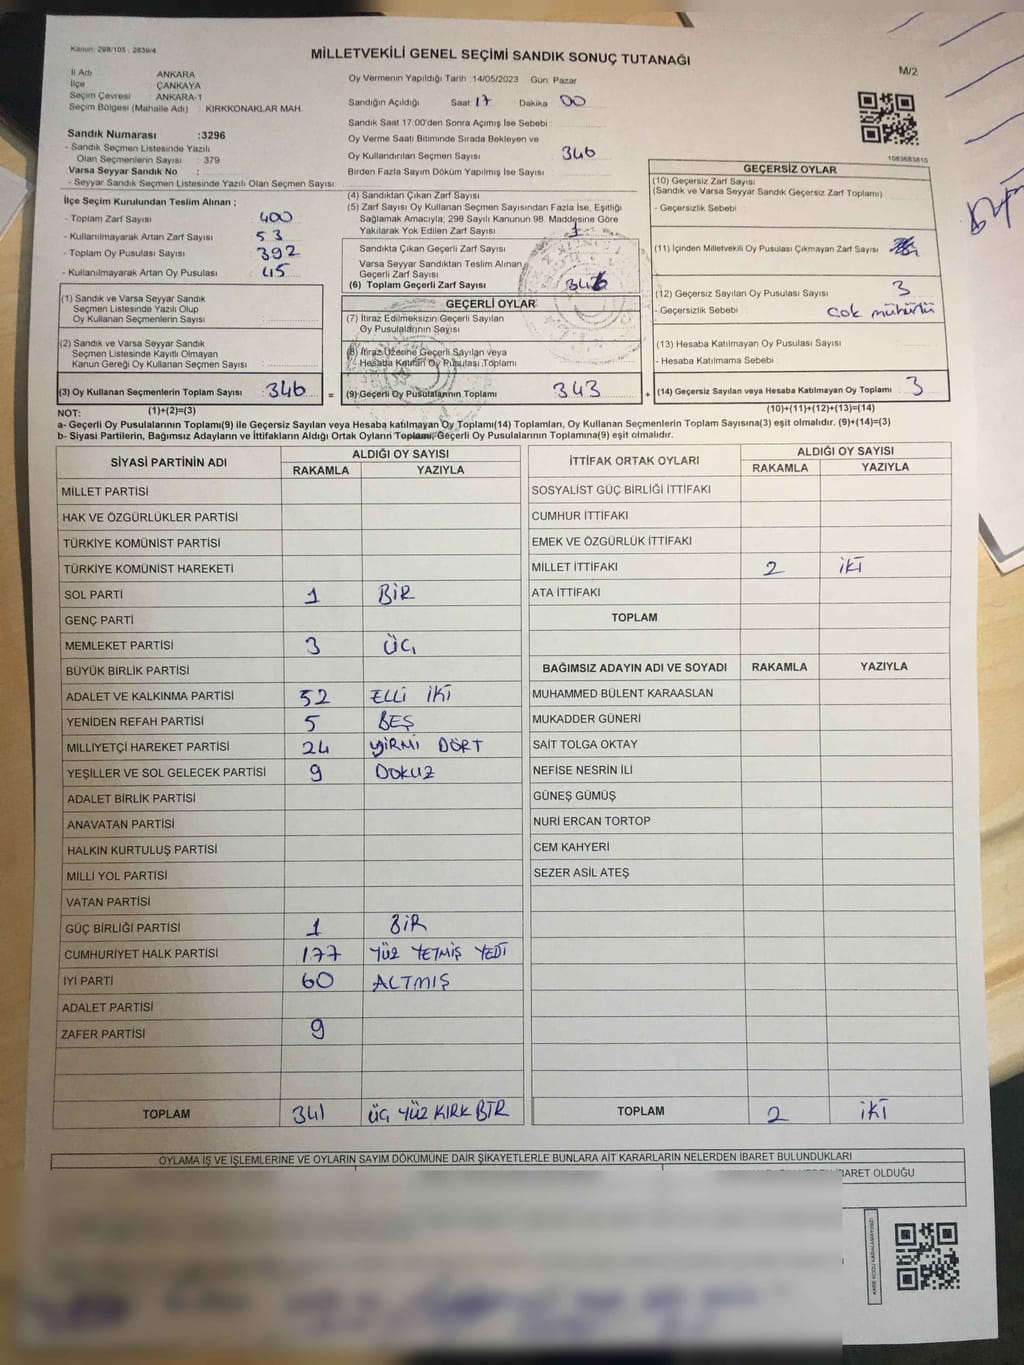 Kanun: 298/105 , 2839/4
MİLLETVEKİLİ GENEL SEÇİMİ SANDIK SONUÇ TUTANAĞI
M/2
İl Adı ANKARA
İlçe ÇANKAYA
Seçim Çevresi ANKARA-1
Seçim Bölgesi (Mahalle Adı) : KIRKKONAKLAR MAH.
Oy Vermenin Yapıldığı Tarih 14/05/2023 Gün: Pazar
Sandığın Açıldığı Saat 17 Dakika 00
Sandık Saat 17:00'den Sonra Açımış İse Sebebi :
Oy Verme Saati Bitiminde Sırada Bekleyen ve
Oy Kullandırılan Seçmen Sayısı 346
Birden Fazla Sayım Döküm Yapılmış İse Sayısı :
1083683810
Sandık Numarası :3296
- Sandık Seçmen Listesinde Yazılı
Olan Seçmenlerin Sayısı : 379
Varsa Seyyar Sandık No :
- Seyyar Sandık Seçmen Listesinde Yazılı Olan Seçmen Sayısı :
İlçe Seçim Kurulundan Teslim Alınan ;
- Toplam Zarf Sayısı 400
- Kullanılmayarak Artan Zarf Sayısı 53
- Toplam Oy Pusulası Sayısı 392
- Kullanılmayarak Artan Oy Pusulası 45
(1) Sandık ve Varsa Seyyar Sandık
Seçmen Listesinde Yazılı Olup
Oy Kullanan Seçmenlerin Sayısı :
(2) Sandık ve Varsa Seyyar Sandık
Seçmen Listesinde Kayıtlı Olmayan
Kanun Gereği Oy Kullanan Seçmen Sayısı :
(3) Oy Kullanan Seçmenlerin Toplam Sayısı 346 =
(1)+(2)=(3)
(4) Sandıktan Çıkan Zarf Sayısı
(5) Zarf Sayısı Oy Kullanan Seçmen Sayısından Fazla İse, Eşitliği
Sağlamak Amacıyla, 298 Sayılı Kanunun 98. Maddesine Göre
Yakılarak Yok Edilen Zarf Sayısı 1
Sandıkta Çıkan Geçerli Zarf Sayısı
Varsa Seyyar Sandıktan Teslim Alınan
Geçerli Zarf Sayısı
(6) Toplam Geçerli Zarf Sayısı 346
GEÇERLİ OYLAR
(7) İtiraz Edilmeksizin Geçerli Sayılan
Oy Pusulalarının Sayısı
(8) İtiraz Üzerine Geçerli Sayılan veya
Hesaba Katılan Oy Pusulası Toplamı
(9) Geçerli Oy Pusulalarının Toplamı 343 +
GEÇERSİZ OYLAR
(10) Geçersiz Zarf Sayısı
(Sandık ve Varsa Seyyar Sandık Geçersiz Zarf Toplamı)
- Geçersizlik Sebebi
(11) İçinden Milletvekili Oy Pusulası Çıkmayan Zarf Sayısı
(12) Geçersiz Sayılan Oy Pusulası Sayısı 3
- Geçersizlik Sebebi Çok mühürlü
(13) Hesaba Katılmayan Oy Pusulası Sayısı
- Hesaba Katılmama Sebebi
(14) Geçersiz Sayılan veya Hesaba Katılmayan Oy Toplamı 3
(10)+(11)+(12)+(13)=(14)
NOT:
a- Geçerli Oy Pusulalarının Toplamı(9) ile Geçersiz Sayılan veya Hesaba katılmayan Oy Toplamı(14) Toplamları, Oy Kullanan Seçmenlerin Toplam Sayısına(3) eşit olmalıdır. (9)+(14)=(3)
b- Siyasi Partilerin, Bağımsız Adayların ve İttifakların Aldığı Ortak Oyların Toplamı, Geçerli Oy Pusulalarının Toplamına(9) eşit olmalıdır.
SİYASİ PARTİNİN ADI ALDIĞI OY SAYISI
RAKAMLA YAZIYLA
MİLLET PARTİSİ
HAK VE ÖZGÜRLÜKLER PARTİSİ
TÜRKİYE KOMÜNİST PARTİSİ
TÜRKİYE KOMÜNİST HAREKETİ
SOL PARTİ 1 BİR
GENÇ PARTİ
MEMLEKET PARTİSİ 3 ÜÇ
BÜYÜK BİRLİK PARTİSİ
ADALET VE KALKINMA PARTİSİ 52 ELLİ İKİ
YENİDEN REFAH PARTİSİ 5 BEŞ
MİLLİYETÇİ HAREKET PARTİSİ 24 YİRMİ DÖRT
YEŞİLLER VE SOL GELECEK PARTİSİ 9 DOKUZ
ADALET BİRLİK PARTİSİ
ANAVATAN PARTİSİ
HALKIN KURTULUŞ PARTİSİ
MİLLİ YOL PARTİSİ
VATAN PARTİSİ
GÜÇ BİRLİĞİ PARTİSİ 1 BİR
CUMHURİYET HALK PARTİSİ 177 YÜZ YETMİŞ YEDİ
İYİ PARTİ 60 ALTMIŞ
ADALET PARTİSİ
ZAFER PARTİSİ 9
TOPLAM 341 ÜÇ YÜZ KIRK BİR
İTTİFAK ORTAK OYLARI ALDIĞI OY SAYISI
RAKAMLA YAZIYLA
SOSYALİST GÜÇ BİRLİĞİ İTTİFAKI
CUMHUR İTTİFAKI
EMEK VE ÖZGÜRLÜK İTTİFAKI
MİLLET İTTİFAKI 2 İKİ
ATA İTTİFAKI
TOPLAM
BAĞIMSIZ ADAYIN ADI VE SOYADI RAKAMLA YAZIYLA
MUHAMMED BÜLENT KARAASLAN
MUKADDER GÜNERİ
SAİT TOLGA OKTAY
NEFİSE NESRİN İLİ
GÜNEŞ GÜMÜŞ
NURİ ERCAN TORTOP
CEM KAHYERİ
SEZER ASİL ATEŞ
TOPLAM 2 İKİ
OYLAMA İŞ VE İŞLEMLERİNE VE OYLARIN SAYIM DÖKÜMÜNE DAİR ŞİKAYETLERLE BUNLARA AİT KARARLARIN NELERDEN İBARET BULUNDUKLARI
İBARET OLDUĞU
KARE KODU KARALAMAYINIZ!